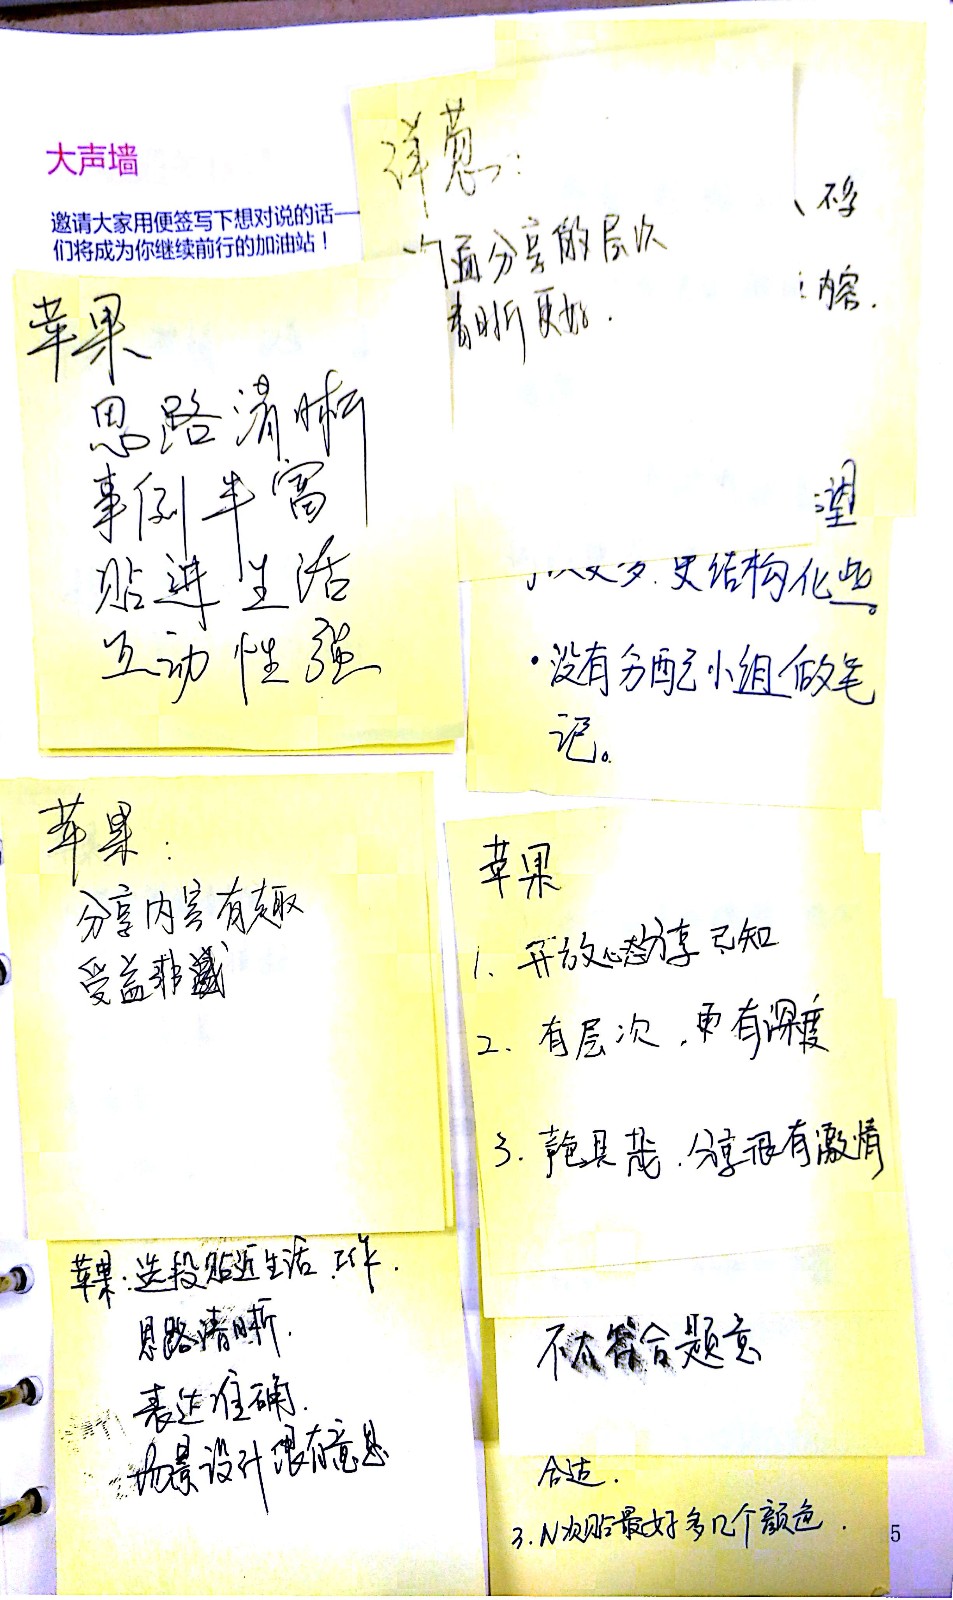 大声墙
邀请大家用便签写下想对说的话—
们将成为你继续前行的加油站！
洋葱：
个面分享的层次
清晰更好.
内容.
苹果
思路清晰
事例丰富
贴进生活
互动性强
望
更多.更结构化些。
·没有分配它小组做笔
记。
苹果：
分享内容有趣
受益非
苹果
1. 开放心态分享已知
2. 有层次，更有深度
3. 分享很有激情
苹果：选段贴近生活.工作.
思路清晰.
表达准确.
场景设计很有意思
不太符合题意
合适.
3.N次贴最好多几个颜色.
5